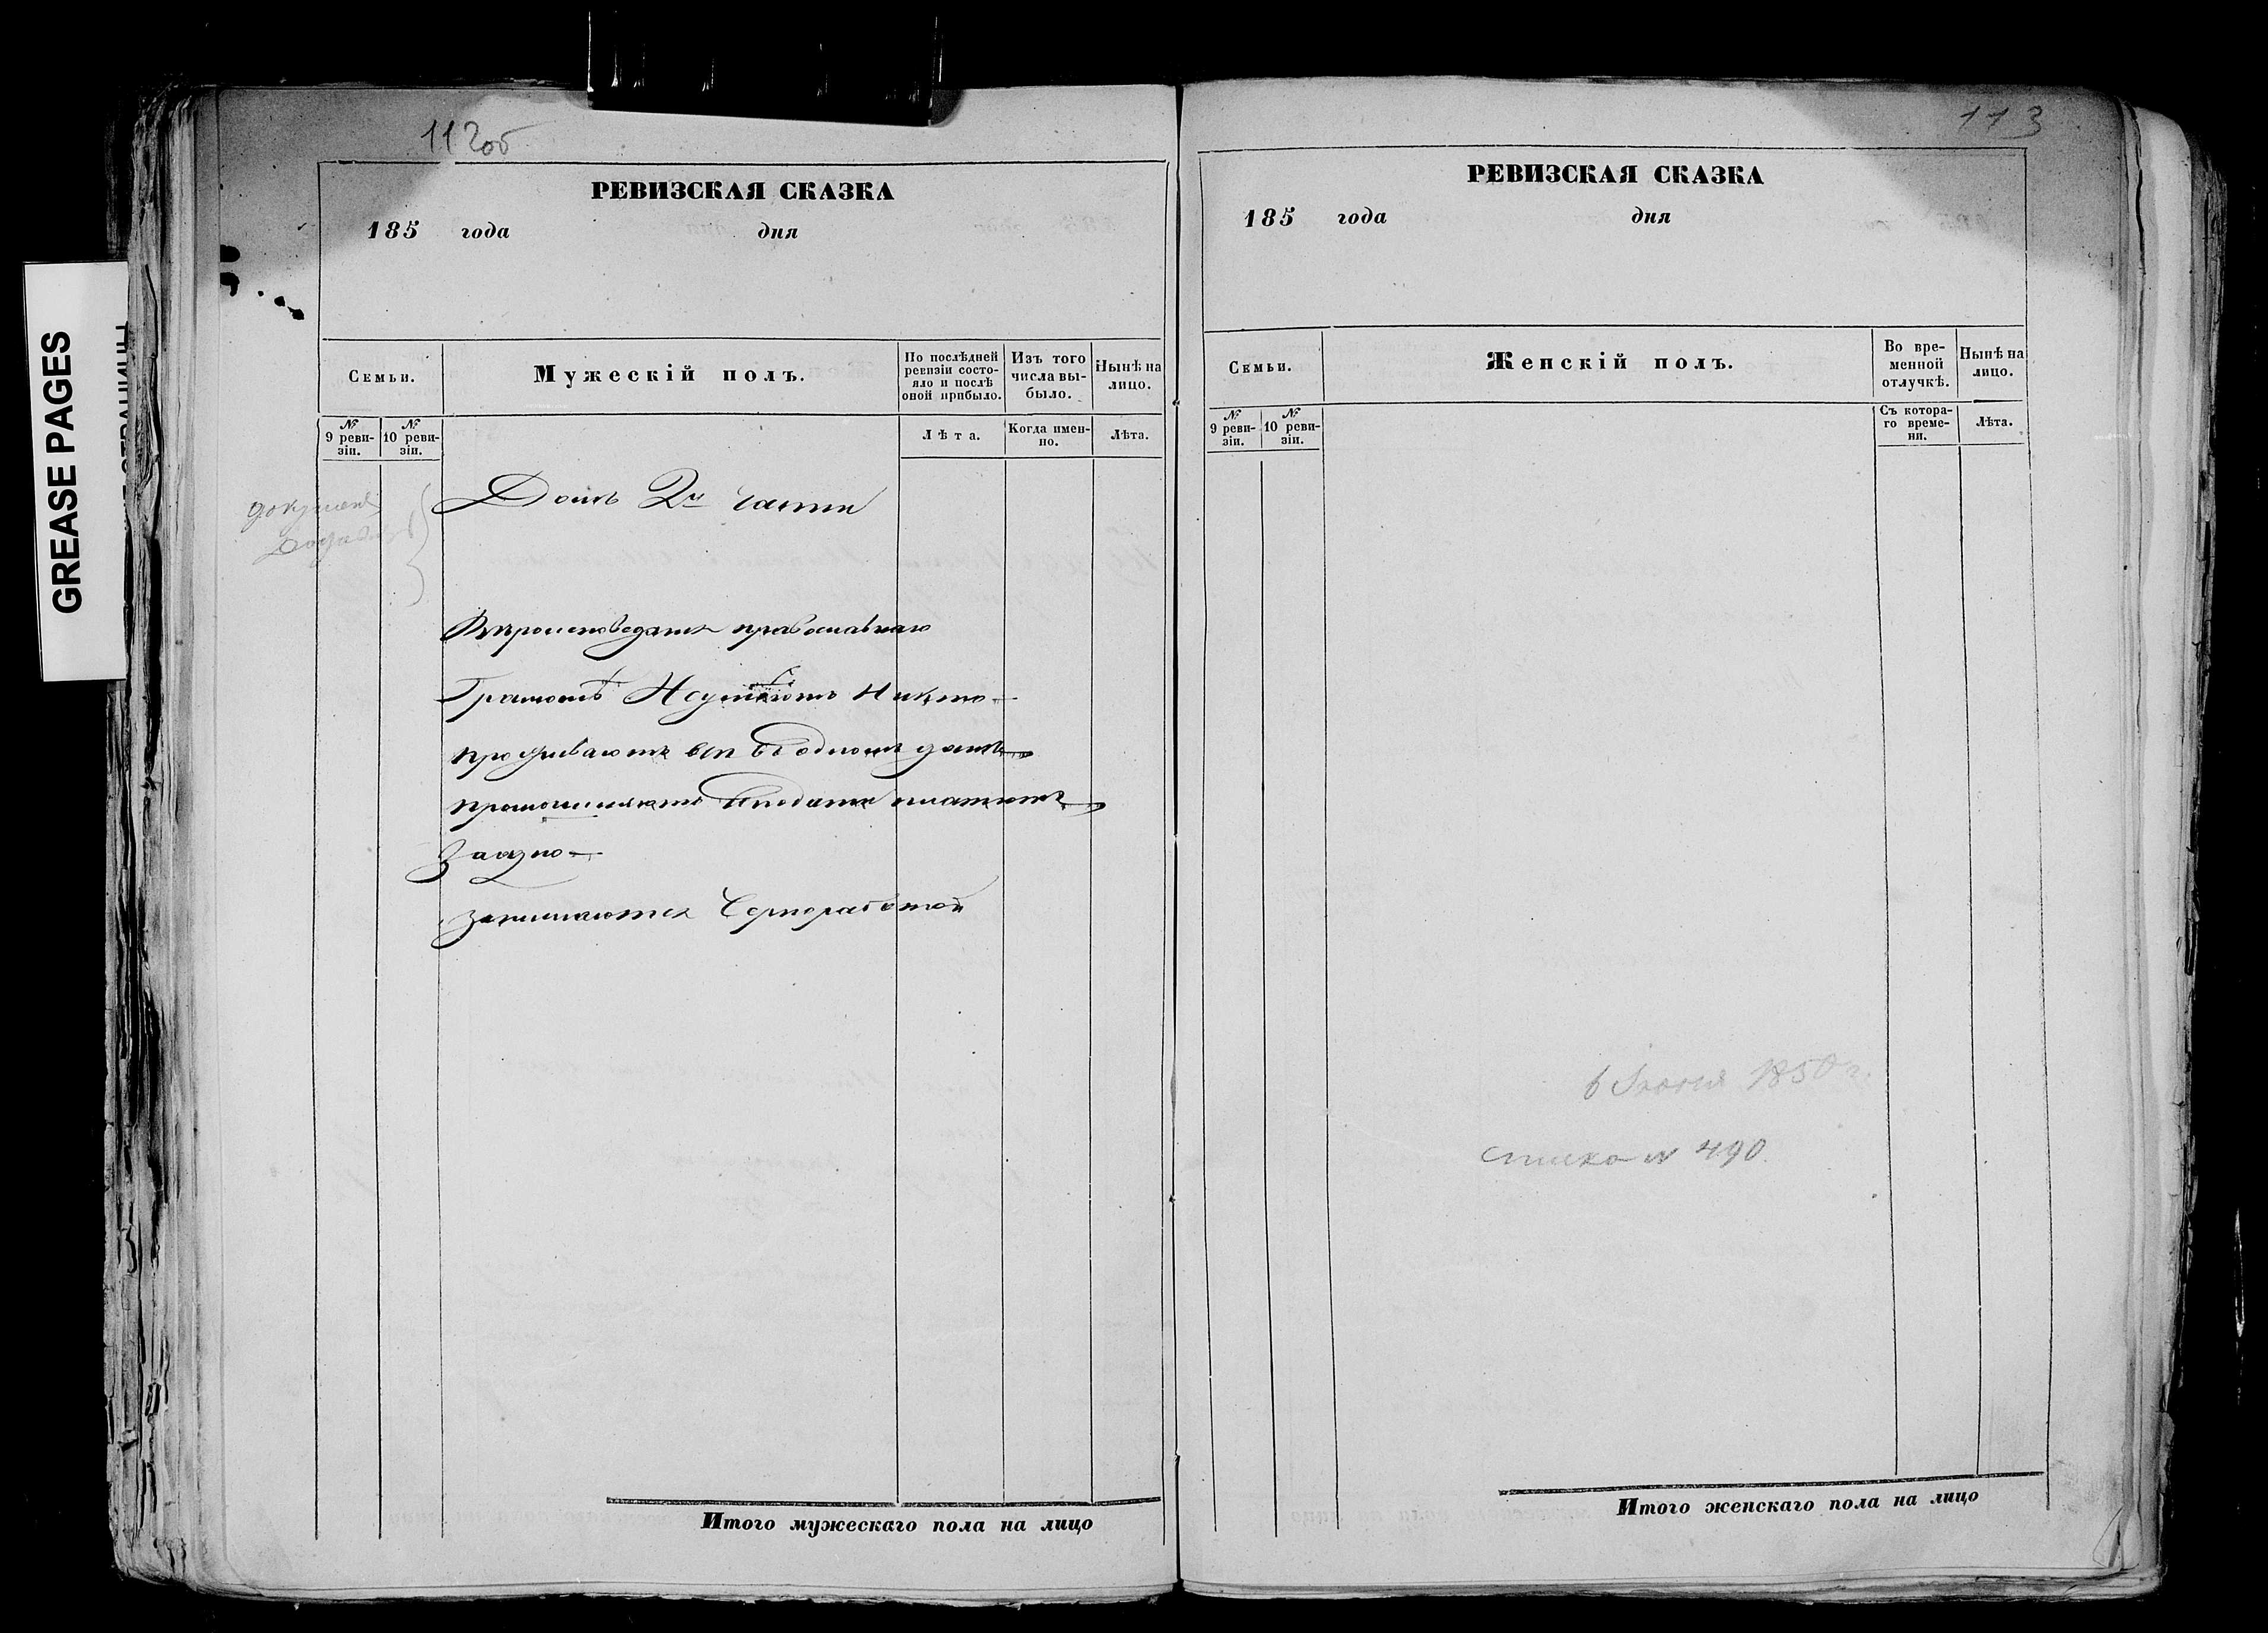 GREASE PAGES
112об
РЕВИЗСКАЯ СКАЗКА
185 года дня
Семьи.
Мужескій полъ.
По послѣдней ревизіи состояло и послѣ оной прибыло.
Изъ того числа выбыло.
Нынѣ на лицо.
№ 9 ревизіи.
№ 10 ревизіи.
Лѣта.
Когда именно.
Лѣта.
Домъ 2й части
Вѣроисповеданія православнаго
Грамотѣ Неумѣютъ Никто
проживаютъ всѣ въ одномъ домѣ
платютъ
занимаются Чернработой
Итого мужескаго пола на лицо
113
РЕВИЗСКАЯ СКАЗКА
185 года дня
Семьи.
Женскій полъ.
Во временной отлучкѣ.
Нынѣ на лицо.
№ 9 ревизіи.
№ 10 ревизіи.
Съ котораго времени.
Лѣта.
6 Іюня 1850 г.
№ 490.
Итого женскаго пола на лицо